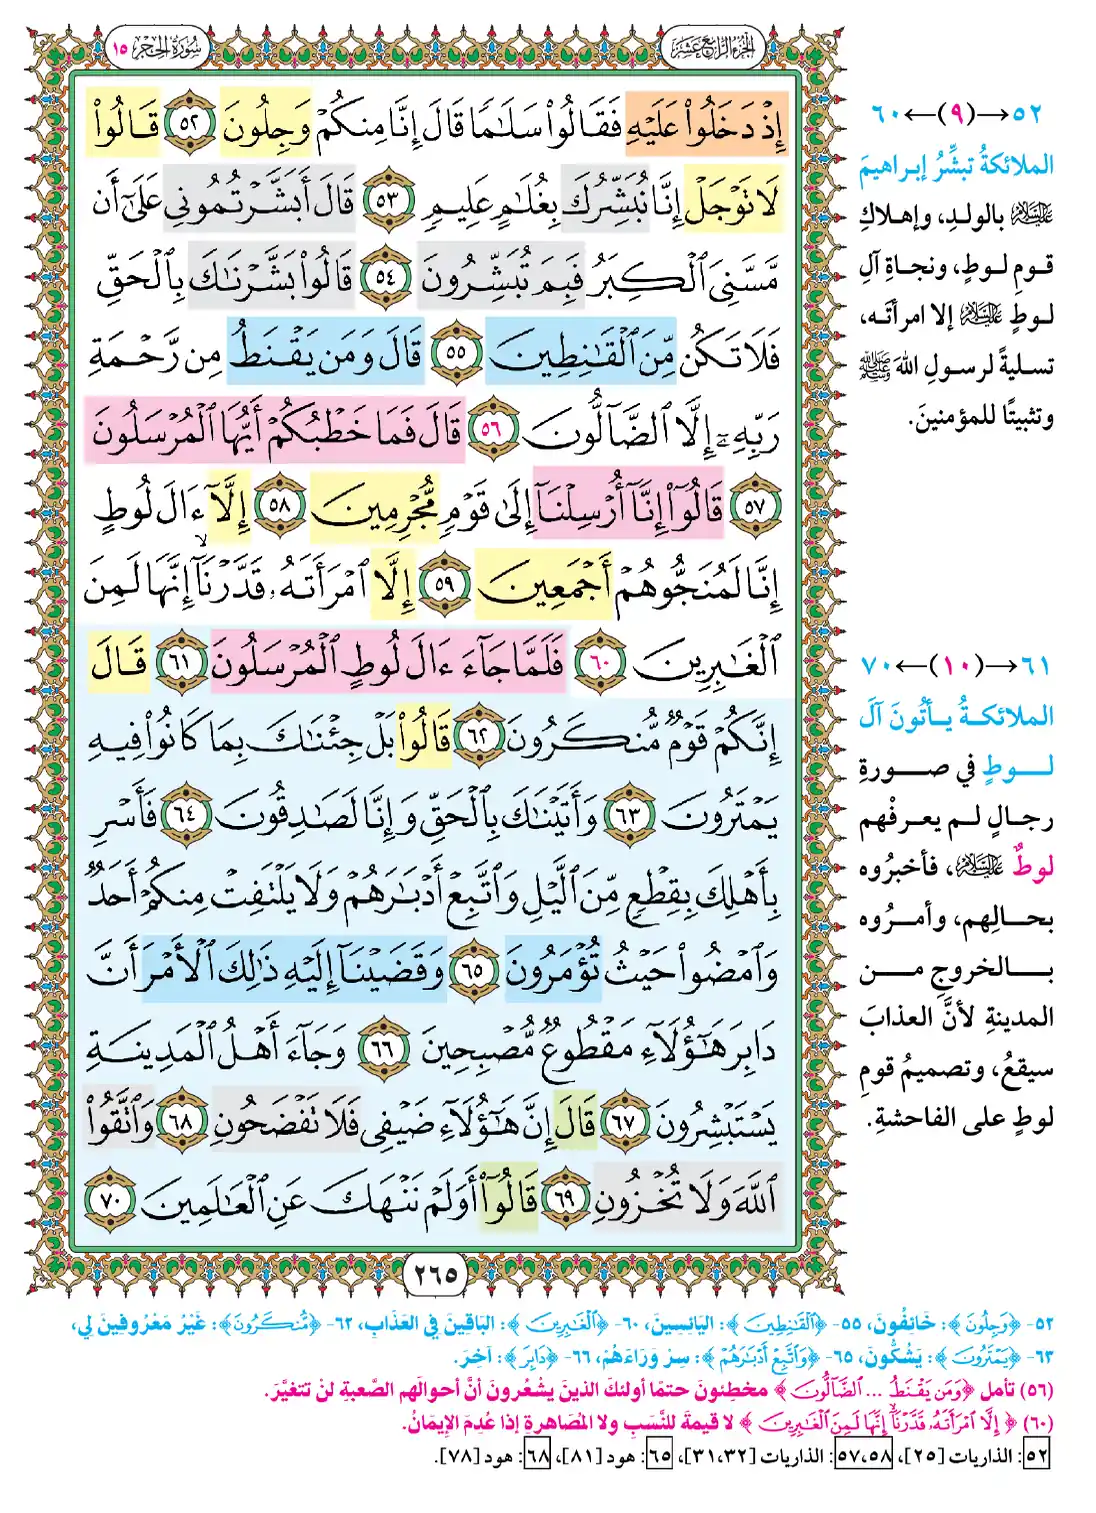 الجزء الرابع عشر
سورة الحجر ١٥
إِذْ دَخَلُوا۟ عَلَيْهِ فَقَالُوا۟ سَلَـٰمًا قَالَ إِنَّا مِنكُمْ وَجِلُونَ ٥٢ قَالُوا۟
لَا تَوْجَلْ إِنَّا نُبَشِّرُكَ بِغُلَـٰمٍ عَلِيمٍ ٥٣ قَالَ أَبَشَّرْتُمُونِى عَلَىٰٓ أَن
مَّسَّنِىَ ٱلْكِبَرُ فَبِمَ تُبَشِّرُونَ ٥٤ قَالُوا۟ بَشَّرْنَـٰكَ بِٱلْحَقِّ
فَلَا تَكُن مِّنَ ٱلْقَـٰنِطِينَ ٥٥ قَالَ وَمَن يَقْنَطُ مِن رَّحْمَةِ
رَبِّهِۦٓ إِلَّا ٱلضَّآلُّونَ ٥٦ قَالَ فَمَا خَطْبُكُمْ أَيُّهَا ٱلْمُرْسَلُونَ
٥٧ قَالُوٓا۟ إِنَّآ أُرْسِلْنَآ إِلَىٰ قَوْمٍ مُّجْرِمِينَ ٥٨ إِلَّآ ءَالَ لُوطٍ
إِنَّا لَمُنَجُّوهُمْ أَجْمَعِينَ ٥٩ إِلَّا ٱمْرَأَتَهُۥ قَدَّرْنَآ ۙ إِنَّهَا لَمِنَ
ٱلْغَـٰبِرِينَ ٦٠ فَلَمَّا جَآءَ ءَالَ لُوطٍ ٱلْمُرْسَلُونَ ٦١ قَالَ
إِنَّكُمْ قَوْمٌ مُّنكَرُونَ ٦٢ قَالُوا۟ بَلْ جِئْنَـٰكَ بِمَا كَانُوا۟ فِيهِ
يَمْتَرُونَ ٦٣ وَأَتَيْنَـٰكَ بِٱلْحَقِّ وَإِنَّا لَصَـٰدِقُونَ ٦٤ فَأَسْرِ
بِأَهْلِكَ بِقِطْعٍ مِّنَ ٱلَّيْلِ وَٱتَّبِعْ أَدْبَـٰرَهُمْ وَلَا يَلْتَفِتْ مِنكُمْ أَحَدٌ
وَٱمْضُوا۟ حَيْثُ تُؤْمَرُونَ ٦٥ وَقَضَيْنَآ إِلَيْهِ ذَٰلِكَ ٱلْأَمْرَ أَنَّ
دَابِرَ هَـٰٓؤُلَآءِ مَقْطُوعٌ مُّصْبِحِينَ ٦٦ وَجَآءَ أَهْلُ ٱلْمَدِينَةِ
يَسْتَبْشِرُونَ ٦٧ قَالَ إِنَّ هَـٰٓؤُلَآءِ ضَيْفِى فَلَا تَفْضَحُونِ ٦٨ وَٱتَّقُوا۟
ٱللَّهَ وَلَا تُخْزُونِ ٦٩ قَالُوٓا۟ أَوَلَمْ نَنْهَكَ عَنِ ٱلْعَـٰلَمِينَ ٧٠
٢٦٥
٥٢→(٩)←٦٠
الملائكةُ تبشِّرُ إبراهيمَ
عليه السلام بالولدِ، وإهلاكِ
قومِ لوطٍ، ونجاةِ آلِ
لوطٍ عليه السلام إلا امرأتَه،
تسليةً لرسولِ اللهِ ﷺ
وتثبيتًا للمؤمنينَ.
٦١→(١٠)←٧٠
الملائكةُ يأتُونَ آلَ
لوطٍ في صورةِ
رجالٍ لم يعرفْهم
لوطٌ عليه السلام، فأخبرُوه
بحالِهم، وأمرُوه
بالخروجِ من
المدينةِ لأنَّ العذابَ
سيقعُ، وتصميمُ قومِ
لوطٍ على الفاحشةِ.
٥٢- ﴿وَجِلُونَ﴾: خَائِفُونَ، ٥٥- ﴿ٱلْقَـٰنِطِينَ﴾: اليَائِسِينَ، ٦٠- ﴿ٱلْغَـٰبِرِينَ﴾: البَاقِينَ فِي العَذَابِ، ٦٢- ﴿مُّنكَرُونَ﴾: غَيْرُ مَعْرُوفِينَ لِي،
٦٣- ﴿يَمْتَرُونَ﴾: يَشُكُّونَ، ٦٥- ﴿وَٱتَّبِعْ أَدْبَـٰرَهُمْ﴾: سِرْ وَرَاءَهُمْ، ٦٦- ﴿دَابِرَ﴾: آخِرَ.
(٥٦) تأمل ﴿وَمَن يَقْنَطُ ... ٱلضَّآلُّونَ﴾ مخطئونَ حتمًا أولئكَ الذينَ يشْعُرونَ أنَّ أحوالَهم الصَّعبةِ لنْ تتغيَّرَ.
(٦٠) ﴿إِلَّا ٱمْرَأَتَهُۥ قَدَّرْنَآ ۙ إِنَّهَا لَمِنَ ٱلْغَـٰبِرِينَ﴾ لا قيمةَ للنَّسَبِ ولا المُصَاهرةِ إذا عُدِمَ الإيمَانُ.
٥٢: الذاريات [٢٥]، ٥٧،٥٨: الذاريات [٣١،٣٢]، ٦٥: هود [٨١]، ٦٨: هود [٧٨].